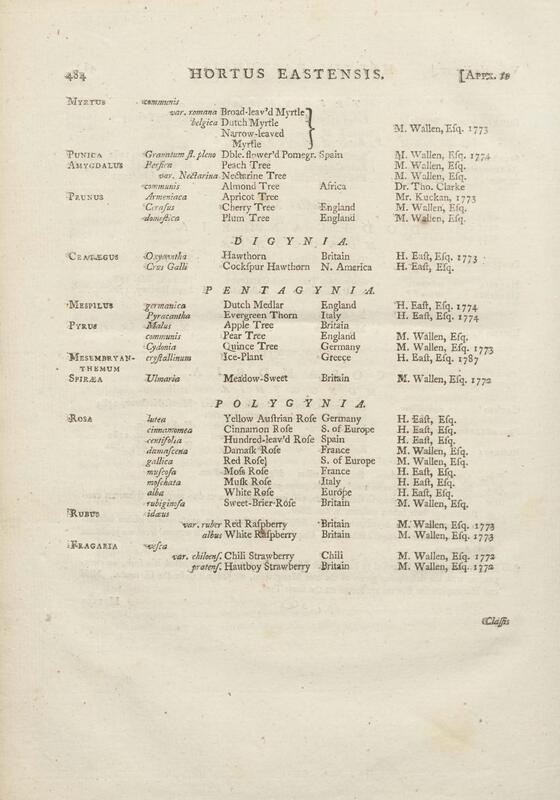 484 HORTUS EASTENSIS. [APPX. to
MYRTUS communis
var. romana Broad-leav'd Myrtle
belgica Dutch Myrtle
Narrow-leaved
Myrtle } M. Wallen, Eſq. 1773
PUNICA Granatum fl. pleno Dble. flower'd Pomegr. Spain M. Wallen, Eſq. 1774
AMYGDALUS Perſica Peach Tree M. Wallen, Eſq.
var. Nectarina Nectarine Tree M. Wallen, Eſq.
communis Almond Tree Africa Dr. Tho. Clarke
PRUNUS Armeniaca Apricot Tree Mr. Kuckan, 1773
Ceraſus Cherry Tree England M. Wallen, Eſq.
domeſtica Plum Tree England M. Wallen, Eſq.
DIGYNIA.
CRATÆGUS Oxyacantha Hawthorn Britain H. Eaſt, Eſq. 1773
Crus Galli Cockſpur Hawthorn N. America H. Eaſt, Eſq.
PENTAGYNIA.
MESPILUS germanica Dutch Medlar England H. Eaſt, Eſq. 1774
Pyracantha Evergreen Thorn Italy H. Eaſt, Eſq. 1774
PYRUS Malus Apple Tree Britain
communis Pear Tree England M. Wallen, Eſq.
Cydonia Quince Tree Germany M. Wallen, Eſq. 1773
MESEMBRYAN- cryſtallinum Ice-Plant Greece H. Eaſt, Eſq. 1787
THEMUM
SPIRÆA Ulmaria Meadow-Sweet Britain M. Wallen, Eſq. 1772
POLYGYNIA.
ROSA lutea Yellow Auſtrian Roſe Germany H. Eaſt, Eſq.
cinnamomea Cinnamon Roſe S. of Europe H. Eaſt, Eſq.
centifolia Hundred-leav'd Roſe Spain H. Eaſt, Eſq.
damaſcena Damaſk Roſe France M. Wallen, Eſq.
gallica Red Roſe S. of Europe M. Wallen, Eſq.
muſcoſa Moſs Roſe France H. Eaſt, Eſq.
moſchata Muſk Roſe Italy H. Eaſt, Eſq.
alba White Roſe Europe H. Eaſt, Eſq.
rubiginoſa Sweet-Brier-Roſe Britain M. Wallen, Eſq.
RUBUS idæus
var. ruber Red Raſpberry Britain M. Wallen, Eſq. 1773
albus White Raſpberry Britain M. Wallen, Eſq. 1773
FRAGARIA veſca
var. chiloenſ. Chili Strawberry Chili M. Wallen, Eſq. 1772
pratenſ. Hautboy Strawberry Britain M. Wallen, Eſq. 1772
Claſſis